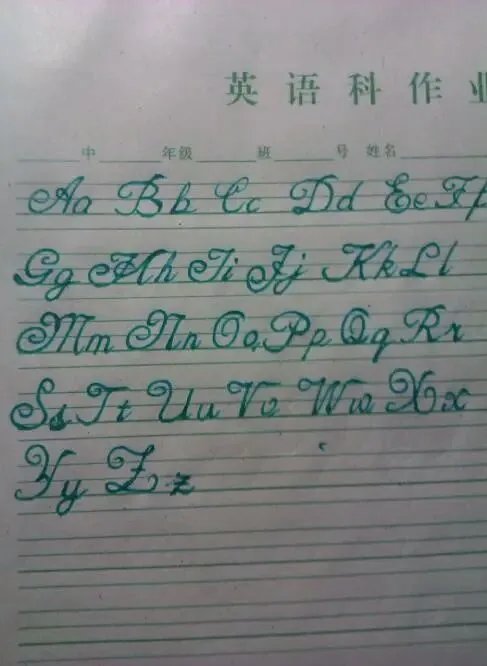 英语科作业
中 年级 班 号 姓名
Aa Bb Cc Dd Ee Ff
Gg Hh Ii Jj Kk Ll
Mm Nn Oo Pp Qq Rr
Ss Tt Uu Vv Ww Xx
Yy Zz